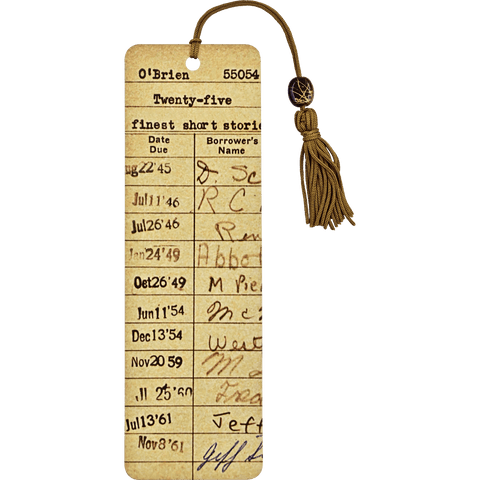 O'Brien 55054
Twenty-five
finest short storie
Date Due Borrower's Name
ug22'45 D. Sc
Jul11'46 R C
Jul26'46 Ren
Jan24'49 Abbo
Oct26'49 M Pie
Jun11'54 McN
Dec13'54 West
Nov2059 M
Jl 25'60
Jul13'61 Jeff
Nov8'61 Jeff